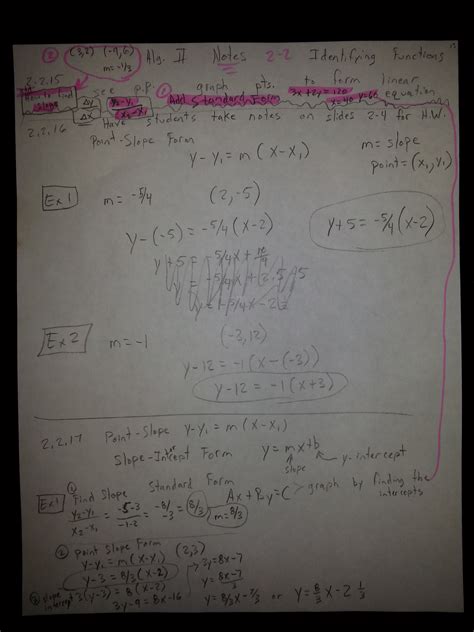 ② (3,2) (-9,6) Alg. II Notes 2-2 Identifying Functions
m = -1/3
2.2.15 see P.P. ① graph pts. to form linear equation
How to find slope Δy/Δx y₂-y₁/x₂-x₁ Add Standard Form 3x + 2y = 120
Have students take notes on slides 2-4 for H.W.
2.2.16
Point-Slope Form m = slope
y - y₁ = m (x - x₁) point = (x₁, y₁)
Ex 1 m = -5/4 (2, -5)
y - (-5) = -5/4 (x - 2) y + 5 = -5/4 (x - 2)
Ex 2 m = -1 (-3, 12)
y - 12 = -1 (x - (-3))
y - 12 = -1 (x + 3)
2.2.17 Point-Slope y - y₁ = m (x - x₁)
Slope-Intercept Form y = mx + b
slope y-intercept
Standard Form Ax + By = C graph by finding the intercepts
Ex 1 ① Find Slope
y₂-y₁/x₂-x₁ = -5-3/-1-2 = -8/-3 = 8/3 m = 8/3
② Point Slope Form (2,3)
y - y₁ = m (x - x₁)
y - 3 = 8/3 (x - 2)
③ slope intercept 3(y - 3) = 8(x - 2)
3y - 9 = 8x - 16
3y = 8x - 7
y = 8x - 7/3
y = 8/3x - 7/3 or y = 8/3 x - 2 1/3